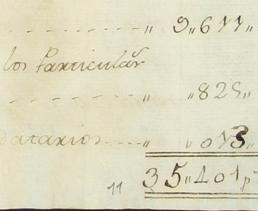 ------ „ 9„677„
los Particulãr
------ „ „825„
datarios ---- „ „013„
11 35„401 p